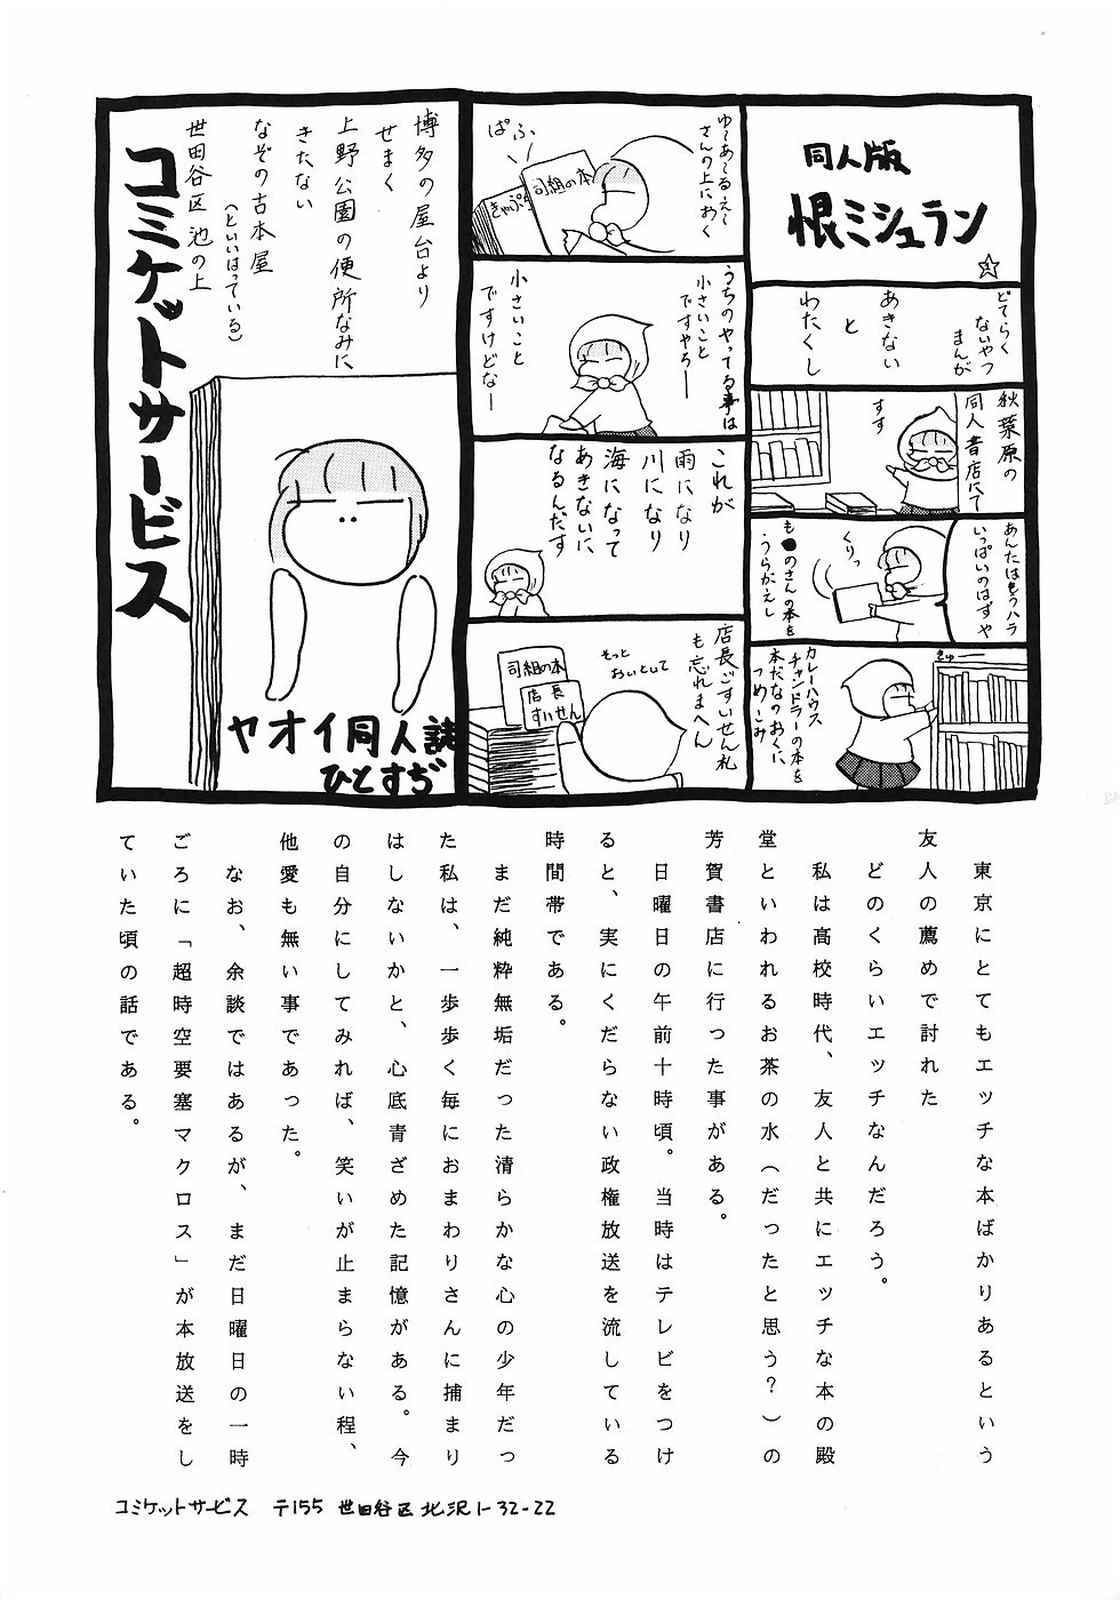 同人版
恨ミシュラン
どてらく
ないやつ
まんが
あきない
と
わたくし
秋葉原の
同人書店にて
すす
あんたはもうハラ
いっぱいのはずや
くりっ
も●のさんの本を
うらがえし
きゅー
カレーハウス
チャンドラーの本を
本だなのおくに
つめこみ
ゆ〜あ〜るえ〜
さんの上におく
ぱふ
司組の本
きゃぷ
うちのやってる事は
小さいこと
ですやろ――
小さいこと
ですけどな――
これが
雨になり
川になり
海になって
あきないに
なるんだす
店長ごすいせん札
も忘れまへん
そっと
おいといて
司組の本
店長
すいせん
博多の屋台より
せまく
上野公園の便所なみに
きたない
なぞの古本屋
(といいはっている)
世田谷区池の上
コミケットサービス
ヤオイ同人誌
ひとすぢ
東京にとてもエッチな本ばかりあるという
友人の薦めで討れた
どのくらいエッチなんだろう。
私は高校時代、友人と共にエッチな本の殿
堂といわれるお茶の水（だったと思う？）の
芳賀書店に行った事がある。
日曜日の午前十時頃。当時はテレビをつけ
ると、実にくだらない政権放送を流している
時間帯である。
まだ純粋無垢だった清らかな心の少年だっ
た私は、一歩歩く毎におまわりさんに捕まり
はしないかと、心底青ざめた記憶がある。今
の自分にしてみれば、笑いが止まらない程、
他愛も無い事であった。
なお、余談ではあるが、まだ日曜日の一時
ごろに「超時空要塞マクロス」が本放送をし
ていた頃の話である。
コミケットサービス 〒155 世田谷区北沢1-32-22